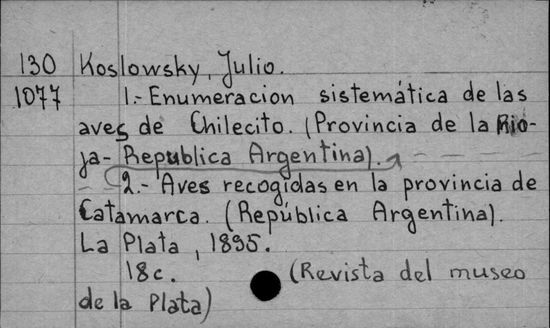 130 Koslowsky, Julio.
1077 1.- Enumeracion sistemática de las
aves de Chilecito. (Provincia de la Rio-
ja- Republica Argentina).
2.- Aves recogidas en la provincia de
Catamarca. (República Argentina).
La Plata, 1895.
18c. (Revista del museo
de la Plata)